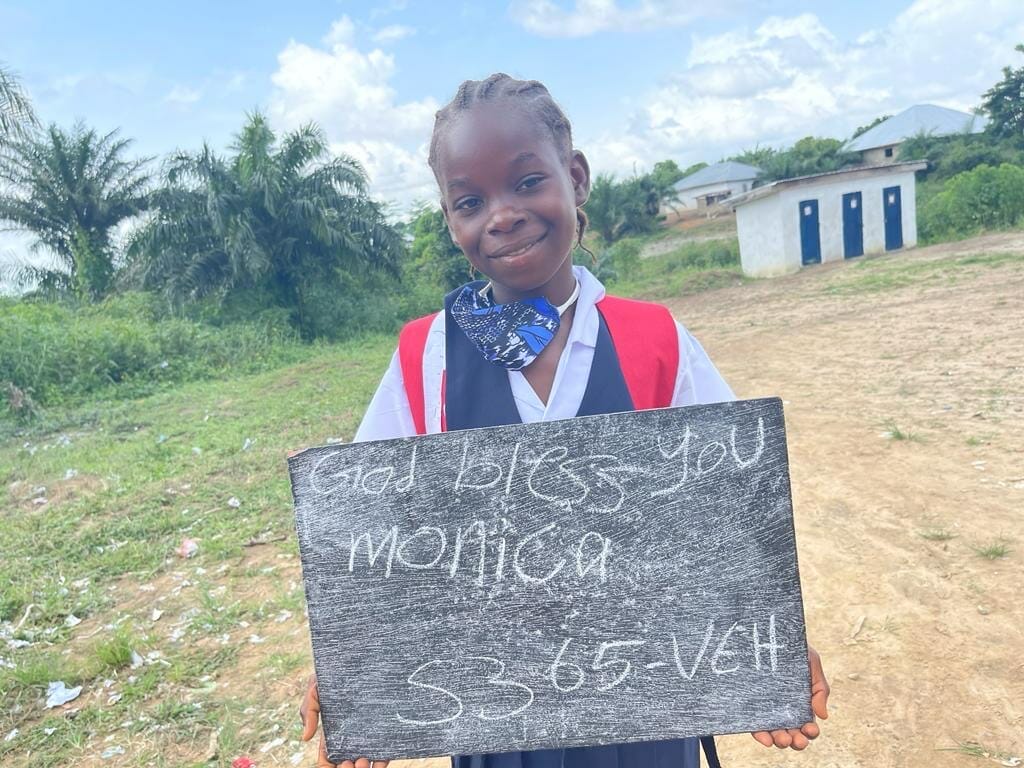 God bless you
monica
S3 65-VEH